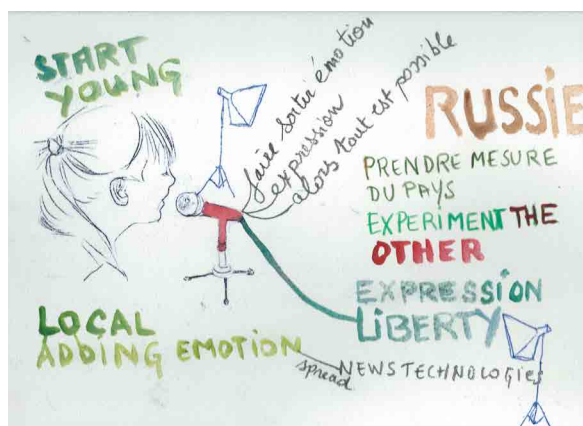 START
YOUNG
faire sortir émotion
expression
alors tout est possible
RUSSIE
PRENDRE MESURE
DU PAYS
EXPERIMENT THE
OTHER
EXPRESSION
LIBERTY
LOCAL
ADDING EMOTION
spread NEWS TECHNOLOGIES